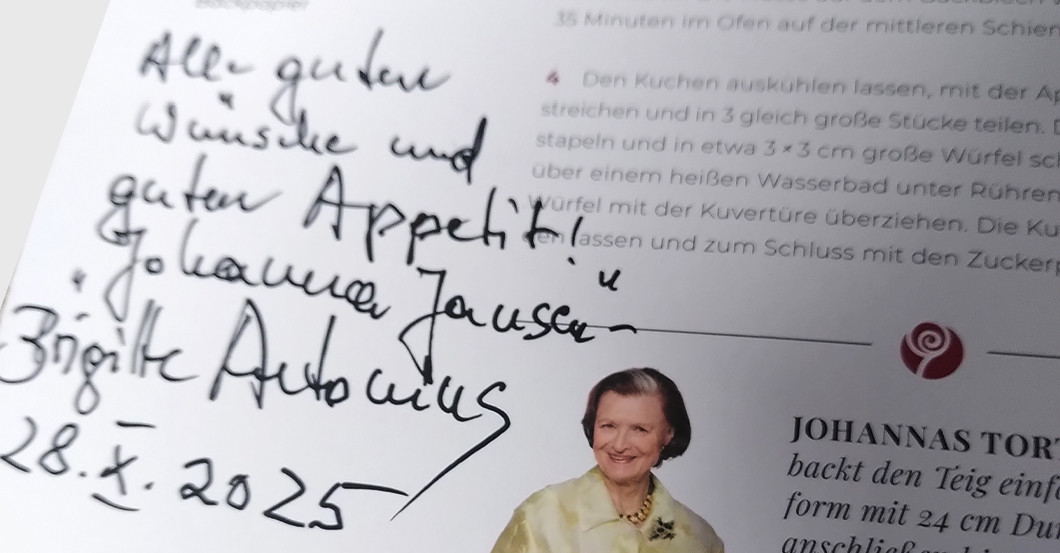 Backpapier
35 Minuten im Ofen auf der mittleren Schien
4 Den Kuchen auskühlen lassen, mit der Ap
streichen und in 3 gleich große Stücke teilen. D
stapeln und in etwa 3 × 3 cm große Würfel sc
über einem heißen Wasserbad unter Rühren
Würfel mit der Kuvertüre überziehen. Die Ku
lassen und zum Schluss mit den Zuckerp
Alle guten
Wünsche und
guten Appetit!
"Johanna Jansen"
Brigitte Antonius
28. X. 2025
JOHANNAS TORT
backt den Teig einf
form mit 24 cm Du
anschließen